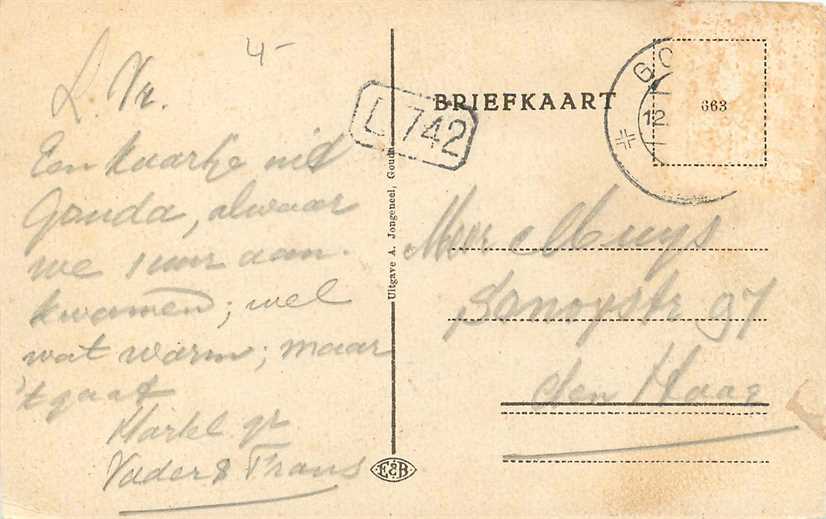 4-
L. Vr.
Een kaartje uit
Gouda, alwaar
we 1 uur aan-
kwamen; wel
wat warm; maar
't gaat
Hartel gr
Vader & Frans
Uitgave A. Jongeneel, Gouda
E&B
L 742
BRIEFKAART
GO
12
663
Mevr Muys
Sonoystr 97
den Haag